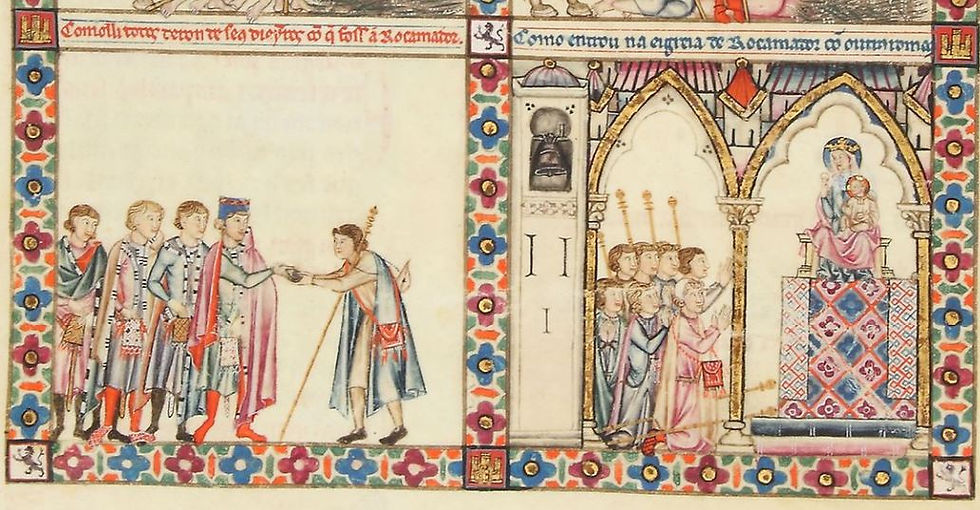 Como lli todos deron de seus dỹeiros cõ q̃ foss a Rocamador.
Como entrou na eigreia de Rocamador cõ outra roma